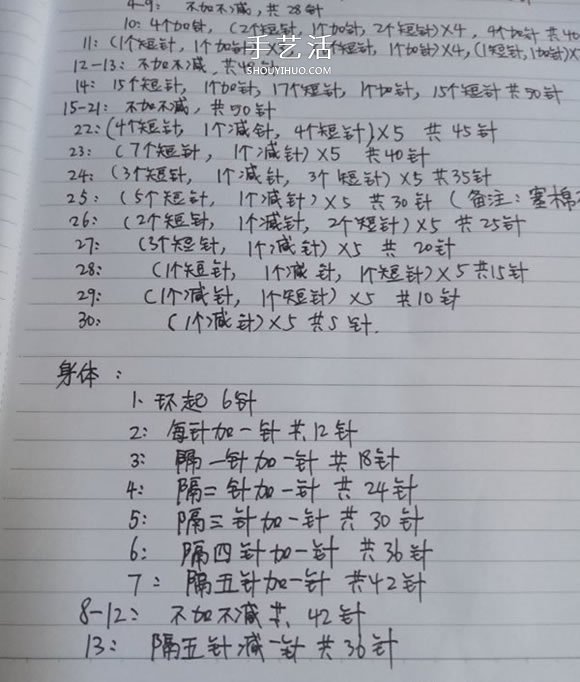 4-9: 不加不减,共28针
10: 4个加针,(2个短针,1个加针,2个短针)×4,9个加针 共40
11: (1个短针,1个加针)×5 个短针,1个加针)×4,(1短针,1加针)×
手艺活
SHOUYIHUO.COM
12-13: 不加不减,共48针
14: 15个短针,1个加针,17个短针,1个加针,15个短针 共50针
15-21: 不加不减,共50针
22: (4个短针,1个减针,4个短针)×5 共45针
23: (7个短针,1个减针)×5 共40针
24: (3个短针,1个减针,3个短针)×5 共35针
25: (5个短针,1个减针)×5 共30针 (备注:塞棉
26: (2个短针,1个减针,2个短针)×5 共25针
27: (3个短针,1个减针)×5 共20针
28: (1个短针,1个减针,1个短针)×5 共15针
29: (1个减针,1个短针)×5 共10针
30: (1个减针)×5 共5针.
身体:
1. 环起 6针
2: 每针加一针 共12针
3: 隔一针加一针 共18针
4: 隔二针加一针 共24针
5: 隔三针加一针 共30针
6: 隔四针加一针 共36针
7: 隔五针加一针 共42针
8-12: 不加不减 共 42针
13: 隔五针减一针 共36针